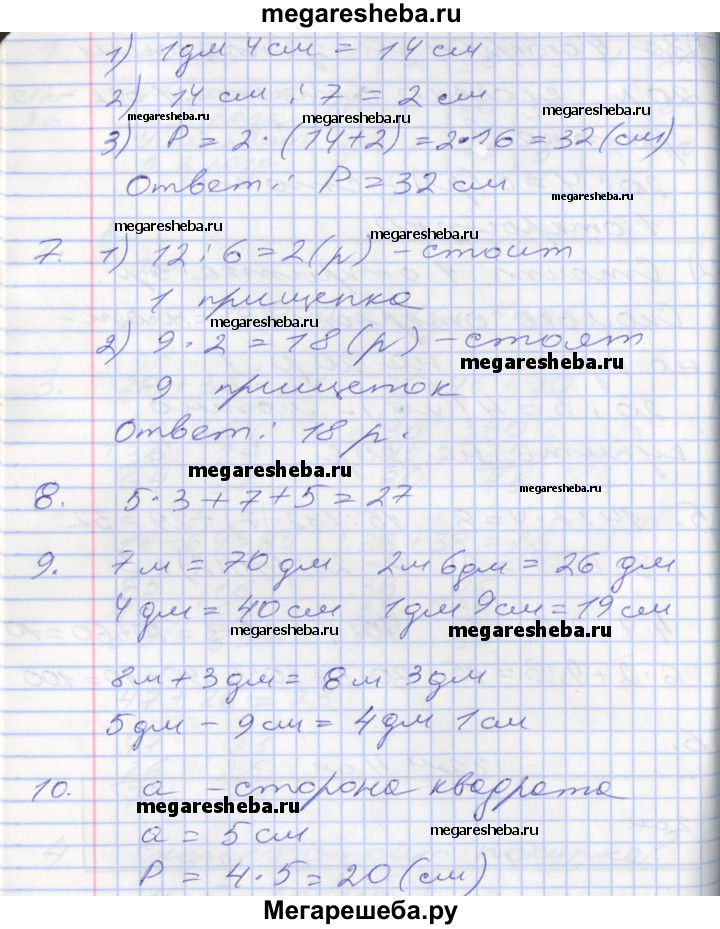 megaresheba.ru
1) 1дм 4см = 14 см
2) 14 см : 7 = 2 см
megaresheba.ru megaresheba.ru
3) P = 2 · (14+2) = 2·16 = 32 (см)
Ответ: P = 32 см
megaresheba.ru
megaresheba.ru
7. 1) 12 : 6 = 2 (р) – стоит
1 прищепка
megaresheba.ru
2) 9 · 2 = 18 (р) – стоят
megaresheba.ru
9 прищепок
Ответ: 18 р.
megaresheba.ru
8. 5·3+7+5=27
megaresheba.ru
9. 7м = 70 дм 2м 6дм = 26 дм
4 дм = 40 см 1дм 9см = 19 см
megaresheba.ru megaresheba.ru
8м + 3 дм = 8м 3дм
5 дм – 9 см = 4 дм 1см
10. а – сторона квадрата
megaresheba.ru
а = 5 см
megaresheba.ru
P = 4·5 = 20 (см)
Мегарешеба.ру